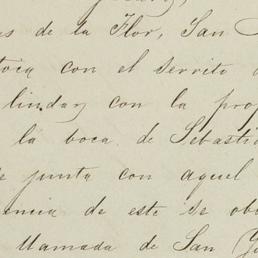 s de la Flor, San
toca con el serrito
lindar con la prop
la boca de Sebasti
junta con aquel
encia de este se ob
llamada de San